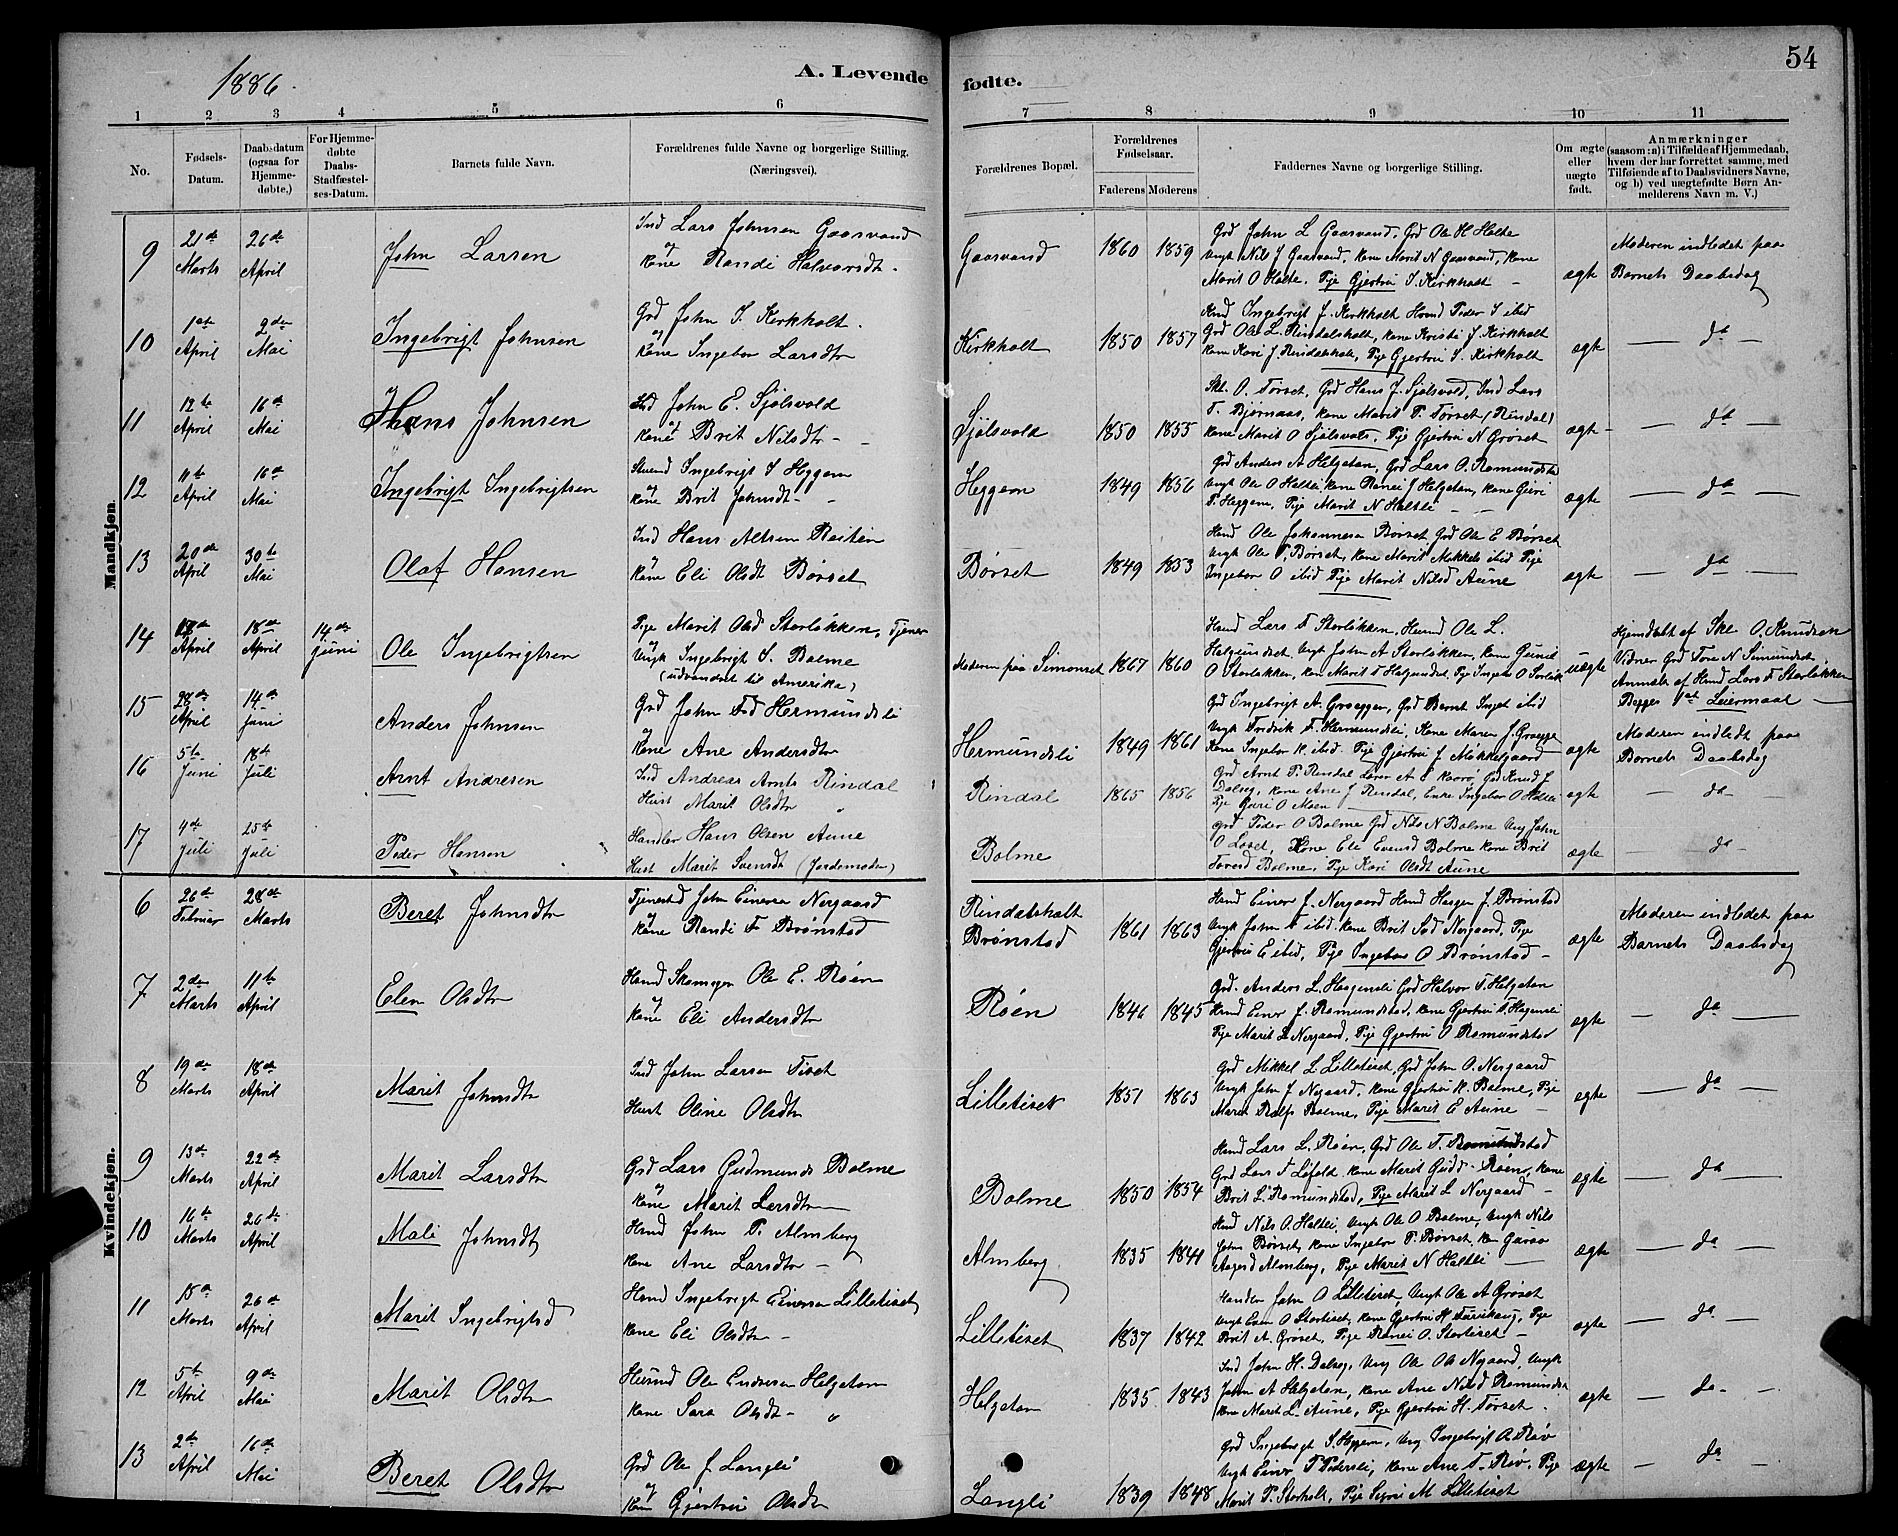 54
1886.
A. Levende fødte.
1 2 3 4 5 6 7 8 9 10 11
No.
Fødsels-
Datum.
Daabsdatum
(ogsaa for
Hjemme-
døbte,)
For Hjemme-
døbte
Daabs-
Stadfæstel-
ses-Datum.
Barnets fulde Navn.
Forældrenes fulde Navne og borgerlige Stilling.
(Næringsvei).
Forældrenes Bopæl.
Forældrenes
Fødselsaar.
Faderens Moderens
Faddernes Navne og borgerlige Stilling.
Om ægte
eller
uægte
født.
Anmærkninger
(saasom: a) i Tilfælde af Hjemmedaab,
hvem der har forrettet samme, med
Tilføiende af to Daabsvidners Navne,
og b) ved uægtefødte Børn An-
melderens Navn m. V.)
Mandkjøn.
9
21de Marts
26de April
John Larsen
Ind Lars Johnsen Gaasvand
og Kone Randi Halvorsdtr
Gaasvand
1860 1859
Grd John L Gaasvand, Grd Ole H Halte
Ungk Nils J Gaasvand, Kone Marit N Gaasvand, Kone
Marit O Halte, Pige Gjertrui I. Kirkholt
ægte
Moderen indledet paa
Barnets Daabsdag
10
1ste April
2den Mai
Ingebrigt Johnsen
Grd John I. Kirkholt
og Kone Ingebor Larsdtr
Kirkholt
1850 1857
Ingebrigt J. Kirkholt Peder I ibid
Grd Ole L. Rindalsholt, Kone Kristi J Kirkholt
Kone Kari J. Rindalsholt, Pige Gjertrui I. Kirkholt
ægte
do
11
12te April
16de Mai
Hans Johnsen
Ind John E. Sjølsvold
og Kone Brit Nilsdtr
Sjølsvold
1850 1855
Skl. O. Tørset, Grd Hans J. Sjølsvold, Ind Lars
T. Bjørnaas, Kone Marit P. Tørset (Rindal)
Kone Marit O Sjølsvold, Pige Gjertrui N Grøset
ægte
do
12
11te April
16de Mai
Ingebrigt Ingebrigtsen
Ingebrigt I Heggem
og Kone Brit Johnsdtr
Heggem
1849 1856
Grd Anders A Helgetun, Grd Lars O. Romundstad
Ungk Ole O Haltli Kone Ranei J Helgetun, Kone Guri
P. Heggem, Pige Marit N Haltli
ægte
do
13
20de April
30te Mai
Olaf Hansen
Ind Hans Rosten
og Kone Eli Olsdt Børset
Børset
1849 1853
Ole Johannesen Børset Grd Ole E Børset
Ungk Ole T. Børset, Kone Marit Mikkels ibid Pige
Ingebor O ibid Pige Marit Nilsd Aune
ægte
do
14
April
18de April
14de Juni
Ole Ingebrigtsen
Pige Marit Olsd Storløkken, Tjener
og Ungk Ingebrigt I. Bolme
(udvandret til Amerika)
Moderen paa Simonset
1867 1860
Lars T Storløkken, Ole L.
Halgundset, Ungk John A Storløkken, Kone Gunil
O Storløkken, Kone Marit T Halgundset, Pige Ingebor O Storløk
uægte
Hjemdøbt af Skl O. Knudsen
Vidner Grd Tore N Simundset
Anmeldt af Lars T Storløkken
Begges 1ste Leiermaal
15
28de April
14de Juni
Anders Johnsen
Grd John Hermundsli
og Kone Ane Andersdtr
Hermundsli
1849 1861
Grd Ingebrigt A. Groeggen, Grd Bernt ibid
Ungk Fredrik F. Hermundsli, Kone Maren J. Groegge
Kone Ingebor K. ibid Pige Gjertrui J Møkkelgaard
ægte
Moderen indledt paa
Barnets Daabsdag
16
5te Juni
18de Juli
Arnt Andresen
Ind Andreas Arnts Rindal
Hust Marit Olsdtr
Rindal
1865 1856
Grd Arnt P. Rindal Lærer A E Grd Knud J
Dalseg, Kone Ane J Rindal, Enke Ingebor O Haltli
Pige Guri O Moen
ægte
do
17
4de Juli
25de Juli
Peder Hansen
Handler Hans Olsen Aune
Hust Marit Svensdt (Jordemoder)
Bolme
Grd Peder O Bolme Grd Nils N Bolme Ung John
O Løset, Kone Eli Evensd Bolme Kone Brit
Toresd Bolme, Pige Kari Olsdt Aune
ægte
do
Kvindekjøn.
6
26de Februar
28de Marts
Beret Johnsdtr
Tjenestd John Einersen Nergaard
og Kone Randi F Brønstad
Rindalsholt
Brønstad
1861 1863
Einer J. Nergaard Hagen J. Brønstad
Ungk John F ibid. Kone Brit Nergaard, Pige
Gjertrui E ibid, Pige Ingebor O Brønstad
ægte
Moderen indledet paa
Barnets Daabsdag
7
2den Marts
11te April
Elen Olsdtr
Skomager Ole E. Røen
og Kone Eli Andersdtr
Røen
1846 1845
Grd. Anders L. Haugensli Grd Halvor T. Helgetun
Einer J. Romundstad, Kone Gjertrui T Hagensli
Pige Marit L Nergaard, Pige Gjertrui O Romundstad
ægte
do
8
19de Marts
18de April
Marit Johnsdtr
Ind John Larsen Tiset
Hust Oline Olsdtr
Lilletiset
1851 1863
Grd Mikkel L Lilletiset, Grd John O. Nergaard
Ungk John J Nygaard, Kone Gjertrui K. Bolme, Pige
Marit Rolfs Bolme, Pige Marit E Aune
ægte
do
9
13de Marts
22de April
Marit Larsdtr
Grd Lars Gudmunds Bolme
og Kone Marit Larsdtr
Bolme
1850 1854
Lars L. Røen, Grd Ole T. Romundstad
Grd Lars T Løfald Kone Marit Gudd. Røen, Kone
Brit L. Romundstad, Pige Marit L Nergaard
ægte
do
10
16de Marts
26de April
Mali Johnsdtr
John P. Almberg
Kone Ane Larsdtr
Almberg
1835 1841
Nils O. Haltli, Ungk Ole O Bolme, Ungk Nils
Johns Børset, Kone Ingebor P. Børset, Kone
Almberg, Pige Marit N Haltli
ægte
do
11
15de Marts
26de April
Marit Ingebrigtsd
Ingebrigt Einersen Lilletiset
Kone Eli Olsdtr
Lilletiset
1837 1842
Handler John O Lilletiset, Ungk Ole A Grøset
Ungk Even O Stortiset, Kone Gjertrui H Furuhaug, Pige
Brit A. Grøset, Pige Ranei O. Stortiset
ægte
do
12
5te April
9de Mai
Marit Olsdtr
Ole Endresen Helgetun
Kone Sara Olsdtr
Helgetun
1835 1843
Ind John H. Dalseg, Ung Ole Ols Nygaard, Ungk
John A Helgetun, Kone Ane Nilsd Romundstad
Kone Marit L. Aune, Pige Gjertrui H. Tørset
ægte
do
13
2den April
16de Mai
Beret Olsdtr
Grd Ole J Langli
og Kone Gjertrui Olsdtr
Langli
1839 1848
Grd Ingebrigt I. Heggem, Ung Ingebrigt A Røv
Ungk Einer T Pedersli, Kone Ane T. Røv, Pige
Marit P. Storholt, Pige Sigrui M Lilletiset
ægte
do